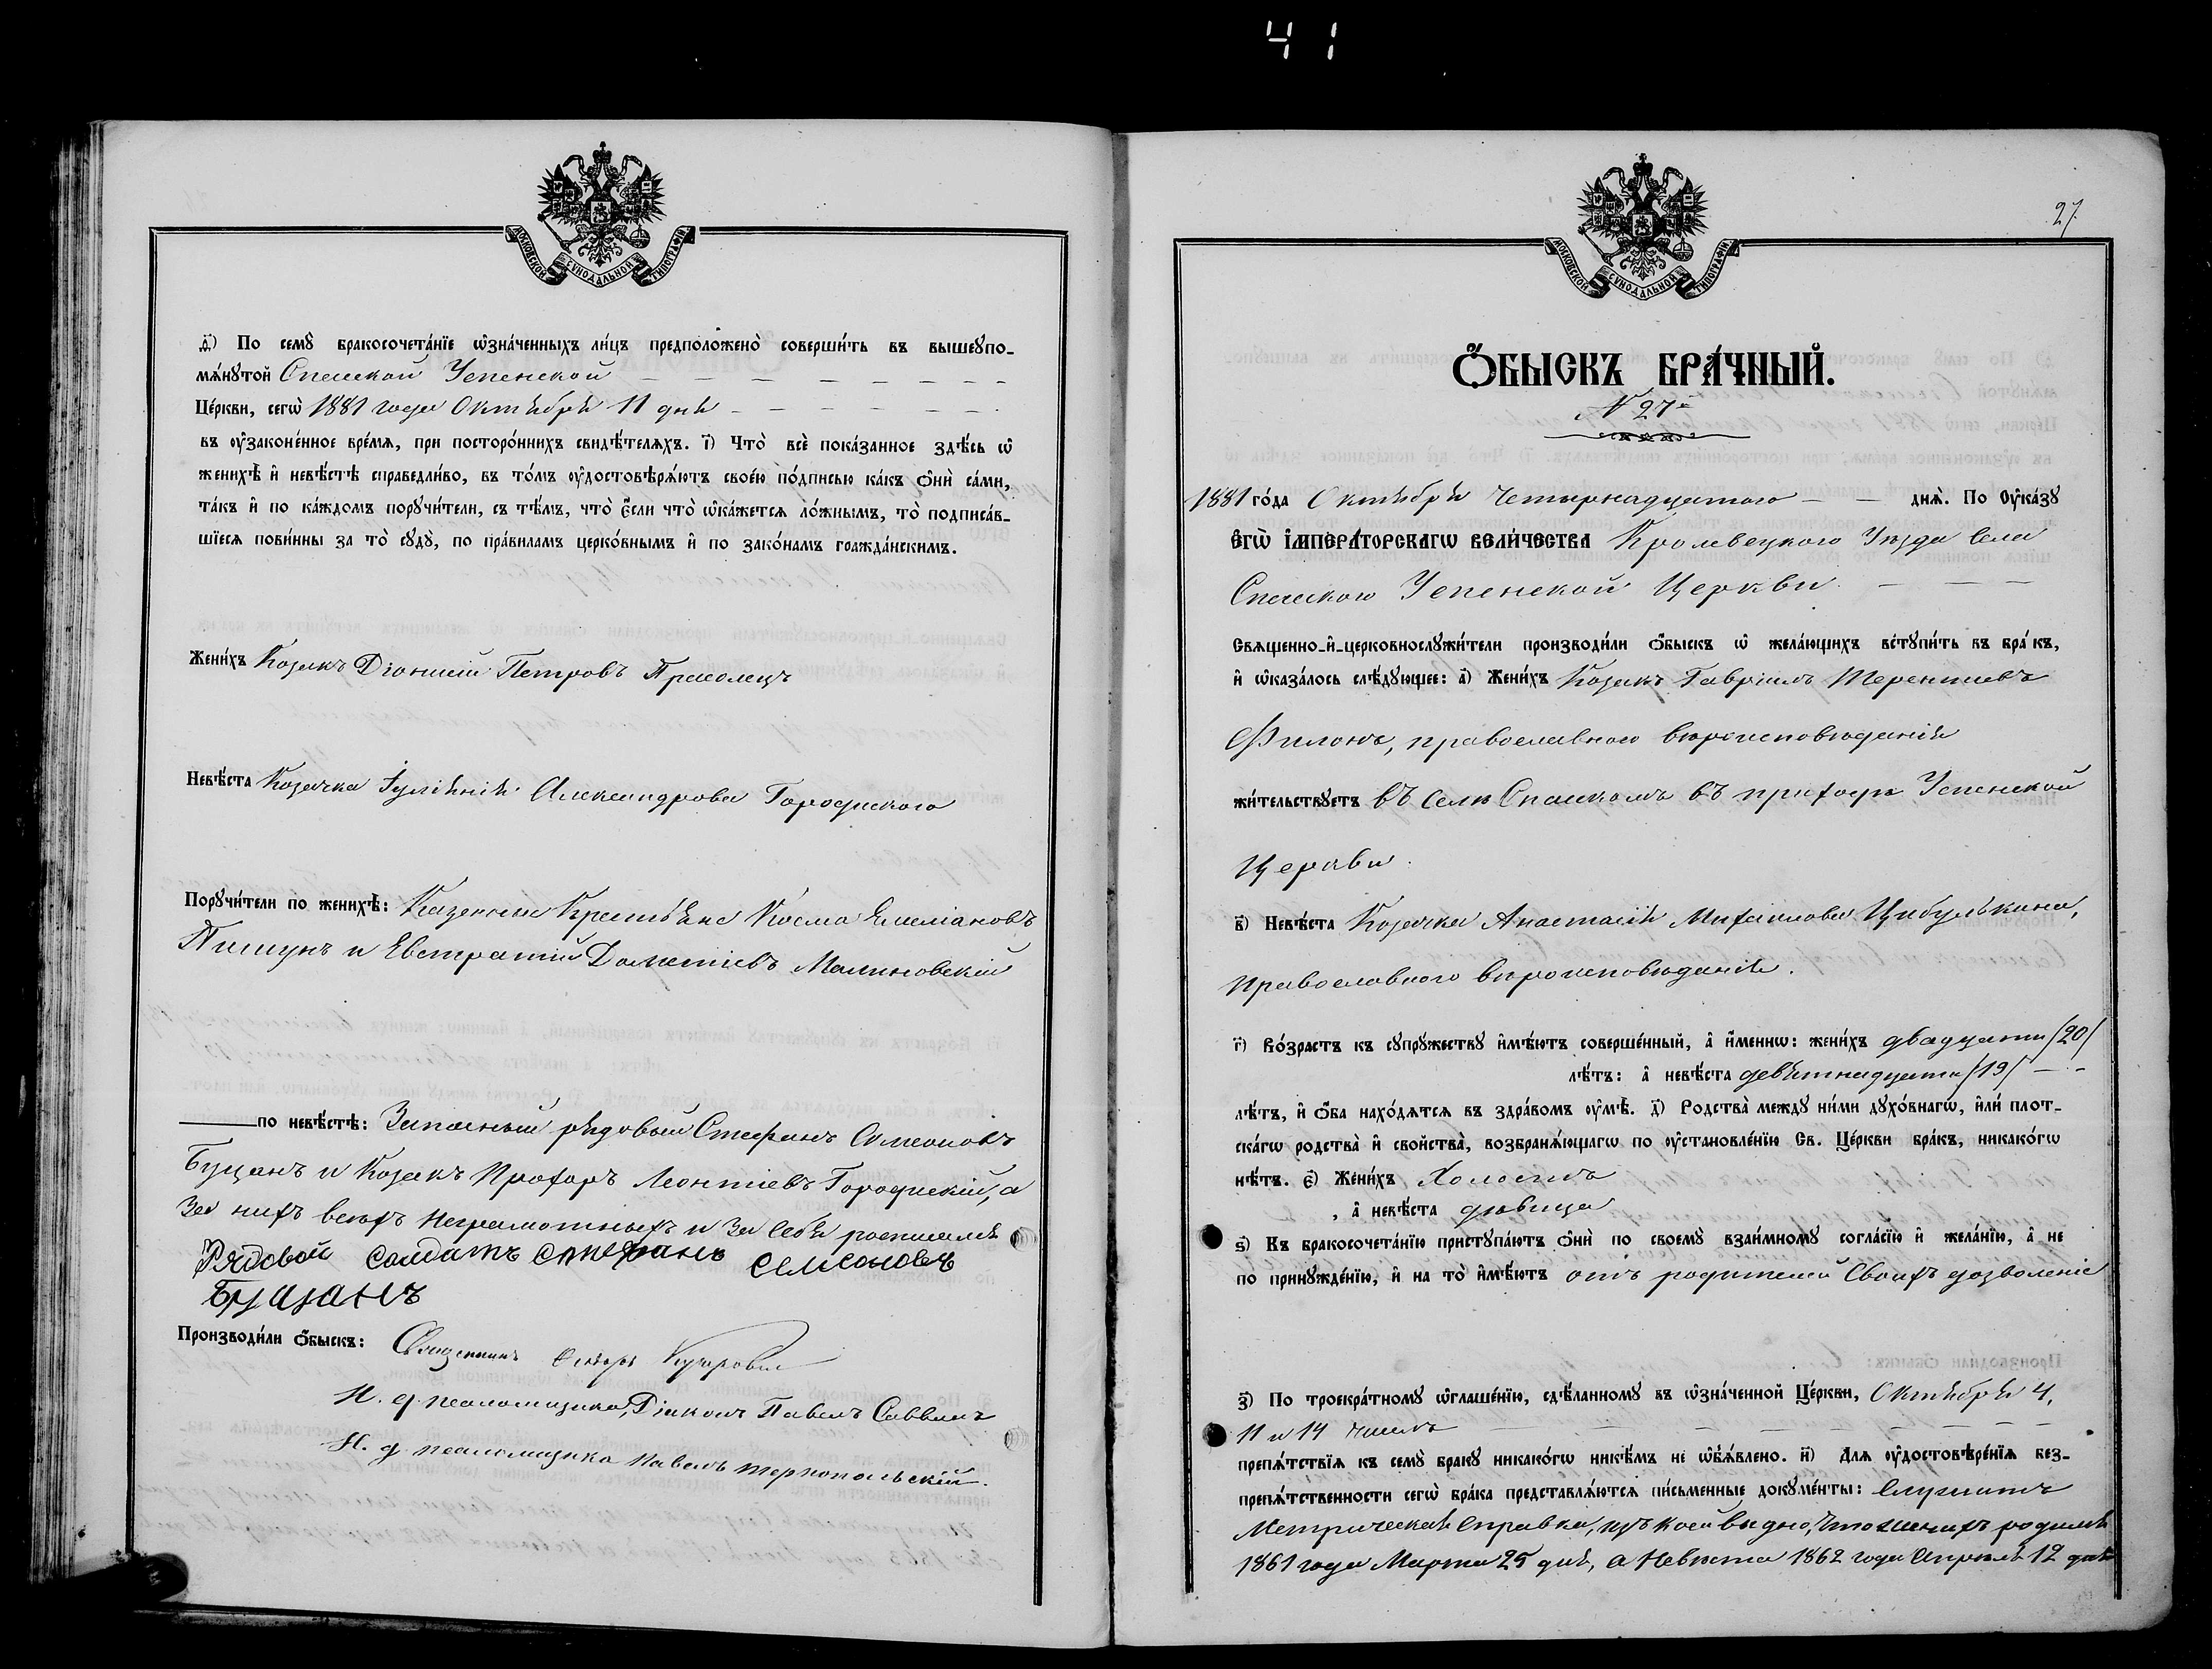 41
МОСКОВСКОЙ СѴНОДАЛЬНОЙ ТИПОГРАФІИ
ѳ҃) По семꙋ̀ бракосочета́нїе ѡ҆зна́ченныхъ ли́цъ предположено̀ соверши́ть въ вышеꙋпо-
мѧ́нꙋтой Спасской Успенской
Це́ркви, сегѡ̀ 1881 года Октября 11 дня
въ ᲂу҆зако́ненное вре́мѧ, при посторо́ннихъ свидѣ́телѧхъ. і҃) Что̀ всѐ пока́занное здѣ́сь ѡ҆
женихѣ̀ и҆ невѣ́стѣ справедли́во, въ то́мъ ᲂу҆достовѣрѧ́ютъ свое́ю по́дписью ка́къ ѻ҆нѝ са́ми,
та́къ и҆ по ка́ждомъ порꙋчи́тели, съ тѣ́мъ, что̀ є҆́сли что̀ ѡ҆ка́жетсѧ ло́жнымъ, то̀ подписа́в-
шїесѧ пови́нны за то̀ сꙋдꙋ̀, по пра́виламъ церко́внымъ и҆ по зако́намъ гражда́нскимъ.
Жени́хъ Козакъ Діонисій Петровъ Прасолецъ
Невѣ́ста Козачка Іуліанія Александрова Городискаго
Порꙋчи́тели по женихѣ̀: Казенные Крестьяне Косма Емеліановъ
Пишунъ и Евстратій Дометіевъ Малиновскій
по невѣ́стѣ: Запасный рядовый Стефанъ Симеоновъ
Буцанъ и Козакъ Прохоръ Леонтіевъ Городискій, а
За нихъ всѣхъ неграмотныхъ и За Себя росписался
Рядовой солдатъ степанъ семсоновъ
Буцанъ
Производи́ли ѻ҆́быскъ: Священникъ Ѳеодоръ
И. д. псаломщика, Діаконъ Павелъ Саввинъ
И. д. псаломщика Павелъ Тернопольскій.
27.
МОСКОВСКОЙ СѴНОДАЛЬНОЙ ТИПОГРАФІИ
Ѻ҆́БЫСКЪ БРА́ЧНЫЙ.
№ 27й
1881 го́да Октября Четырнадцатого днѧ̀. По Оу҆ка́зꙋ
Є҆ГѠ̀ І҆МПЕРА́ТОРСКАГѠ ВЕЛИ́ЧЕСТВА Кролевецкого Уѣзда Села
Спасского Успенской Церкви
Свѧщенно-и҆-церковнослꙋжи́тели производи́ли ѻ҆́быскъ ѡ҆ жела́ющихъ встꙋпи́ть въ бра́къ,
и҆ ѡ҆каза́лось слѣ́дꙋющее: а҃) Жени́хъ Козакъ Гавріилъ Терентіевъ
Филонъ, православного вѣроисповѣданія
жи́тельствꙋетъ въ Селѣ Спасскомъ въ приходѣ Успенской
Церкви.
в҃) Невѣ́ста Козачка Анастасія Михаилова Цибулькина,
Православного вѣроисповѣданія.
г҃) Во́зрастъ къ сꙋпрꙋ́жествꙋ и҆мѣ́ютъ соверше́нный, а҆ и҆́меннѡ: жени́хъ двадцати /20/
лѣ́тъ: а҆ невѣ́ста девятнадцати /19/
лѣ́тъ, и҆ ѻ҆́ба нахо́дѧтсѧ въ здра́вомъ ᲂу҆мѣ̀. д҃) Родства̀ междꙋ ни́ми дꙋхо́внагѡ, и҆лѝ плот-
ска́гѡ родства̀ и҆ свойства̀, возбранѧ́ющагѡ по ᲂу҆становле́нїю Св. Це́ркви бра́къ, никако́гѡ
нѣ́тъ. є҃) Жени́хъ Холостъ
, а҆ невѣ́ста дѣвица
ѕ҃) Къ бракосочета́нїю пристꙋпа́ютъ ѻ҆нѝ по своемꙋ̀ взаи́мномꙋ согла́сїю и҆ жела́нїю, а҆ не
по принꙋжде́нїю, и҆ на то̀ и҆мѣ́ютъ отъ родителей Своихъ дозволеніе
з҃) По троекра́тномꙋ ѡ҆глаше́нїю, сдѣ́ланномꙋ въ ѡ҆зна́ченной Це́ркви, Октября 4,
11 и 14 чиселъ
препѧ́тствїѧ къ семꙋ̀ бракꙋ никако́гѡ никѣ́мъ не ѡ҆б̾ѧ́влено. и҃) Длѧ ᲂу҆достовѣре́нїѧ без-
препѧ́тственности сегѡ̀ бра́ка представлѧ́ютсѧ пи́сьменные докꙋме́нты: Служитъ
Метрическая Справка, изъ коей видно, что женихъ родился
1861 года Марта 25 дня, а Невѣста 1862 года Апрѣля 12 дня